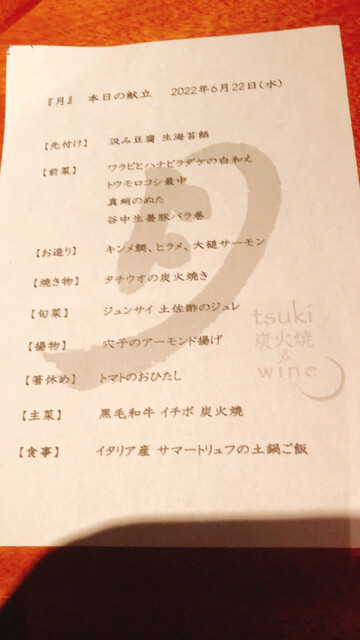 『月』 本日の献立 2022年6月22日(水)
【先付け】 汲み豆腐 生海苔餡
【前菜】 ワラビとハナビラダケの白和え
トウモロコシ最中
真蛸のぬた
谷中生姜豚バラ巻
【お造り】 キンメ鯛、ヒラメ、大槌サーモン
【焼き物】 タチウオの炭火焼き
【旬菜】 ジュンサイ 土佐酢のジュレ
【揚物】 穴子のアーモンド揚げ
【箸休め】 トマトのおひたし
【主菜】 黒毛和牛 イチボ 炭火焼
【食事】 イタリア産 サマートリュフの土鍋ご飯
月
tsuki
炭火焼
&
wine